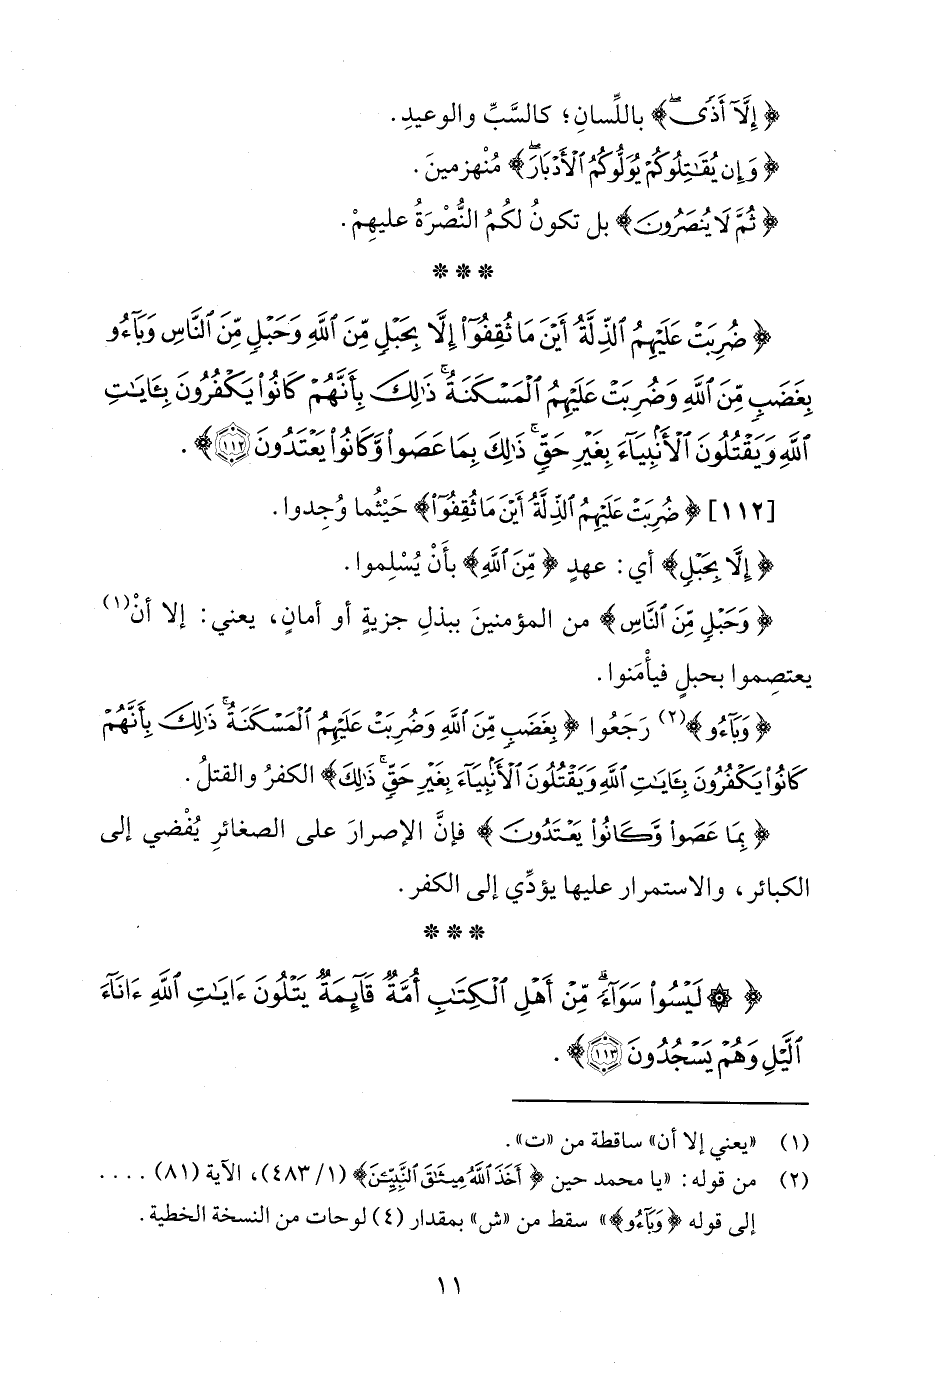 ﴿ إِلَّآ أَذًى ۖ﴾ باللِّسانِ؛ كالسَّبِّ والوعيدِ.
﴿ وَإِن يُقَٰتِلُوكُمْ يُوَلُّوكُمُ ٱلْأَدْبَارَ ۖ﴾ مُنْهزمينَ.
﴿ ثُمَّ لَا يُنصَرُونَ﴾ بل تكونُ لكمُ النُّصْرَةُ عليهِمْ.
* * *
﴿ ضُرِبَتْ عَلَيْهِمُ ٱلذِّلَّةُ أَيْنَ مَا ثُقِفُوٓا۟ إِلَّا بِحَبْلٍ مِّنَ ٱللَّهِ وَحَبْلٍ مِّنَ ٱلنَّاسِ وَبَآءُو
بِغَضَبٍ مِّنَ ٱللَّهِ وَضُرِبَتْ عَلَيْهِمُ ٱلْمَسْكَنَةُ ۚ ذَٰلِكَ بِأَنَّهُمْ كَانُوا۟ يَكْفُرُونَ بِـَٔايَٰتِ
ٱللَّهِ وَيَقْتُلُونَ ٱلْأَنۢبِيَآءَ بِغَيْرِ حَقٍّ ۚ ذَٰلِكَ بِمَا عَصَوا۟ وَّكَانُوا۟ يَعْتَدُونَ ۝١١٢﴾.
[١١٢] ﴿ ضُرِبَتْ عَلَيْهِمُ ٱلذِّلَّةُ أَيْنَ مَا ثُقِفُوٓا۟﴾ حَيْثُما وُجِدوا.
﴿ إِلَّا بِحَبْلٍ﴾ أي: عهدٍ ﴿ مِّنَ ٱللَّهِ﴾ بأَنْ يُسْلِموا.
﴿ وَحَبْلٍ مِّنَ ٱلنَّاسِ﴾ من المؤمنينَ ببذلِ جزيةٍ أو أمانٍ، يعني: إلا أنْ(١)
يعتصِموا بحبلٍ فيأْمَنوا.
﴿ وَبَآءُو﴾(٢) رَجَعُوا ﴿ بِغَضَبٍ مِّنَ ٱللَّهِ وَضُرِبَتْ عَلَيْهِمُ ٱلْمَسْكَنَةُ ۚ ذَٰلِكَ بِأَنَّهُمْ
كَانُوا۟ يَكْفُرُونَ بِـَٔايَٰتِ ٱللَّهِ وَيَقْتُلُونَ ٱلْأَنۢبِيَآءَ بِغَيْرِ حَقٍّ ۚ ذَٰلِكَ﴾ الكفرُ والقتلُ.
﴿ بِمَا عَصَوا۟ وَّكَانُوا۟ يَعْتَدُونَ ﴾ فإنَّ الإصرارَ على الصغائرِ يُفْضي إلى
الكبائر، والاستمرار عليها يؤدِّي إلى الكفر.
* * *
﴿ ۞ لَيْسُوا۟ سَوَآءً ۗ مِّنْ أَهْلِ ٱلْكِتَٰبِ أُمَّةٌ قَآئِمَةٌ يَتْلُونَ ءَايَٰتِ ٱللَّهِ ءَانَآءَ
ٱلَّيْلِ وَهُمْ يَسْجُدُونَ ۝١١٣﴾.
(١) «يعني إلا أن» ساقطة من «ت».
(٢) من قوله: «يا محمد حين ﴿ أَخَذَ ٱللَّهُ مِيثَٰقَ ٱلنَّبِيِّـۧنَ﴾ (١/ ٤٨٣)، الآية (٨١) ....
إلى قوله ﴿ وَبَآءُو﴾» سقط من «ش» بمقدار (٤) لوحات من النسخة الخطية.
١١